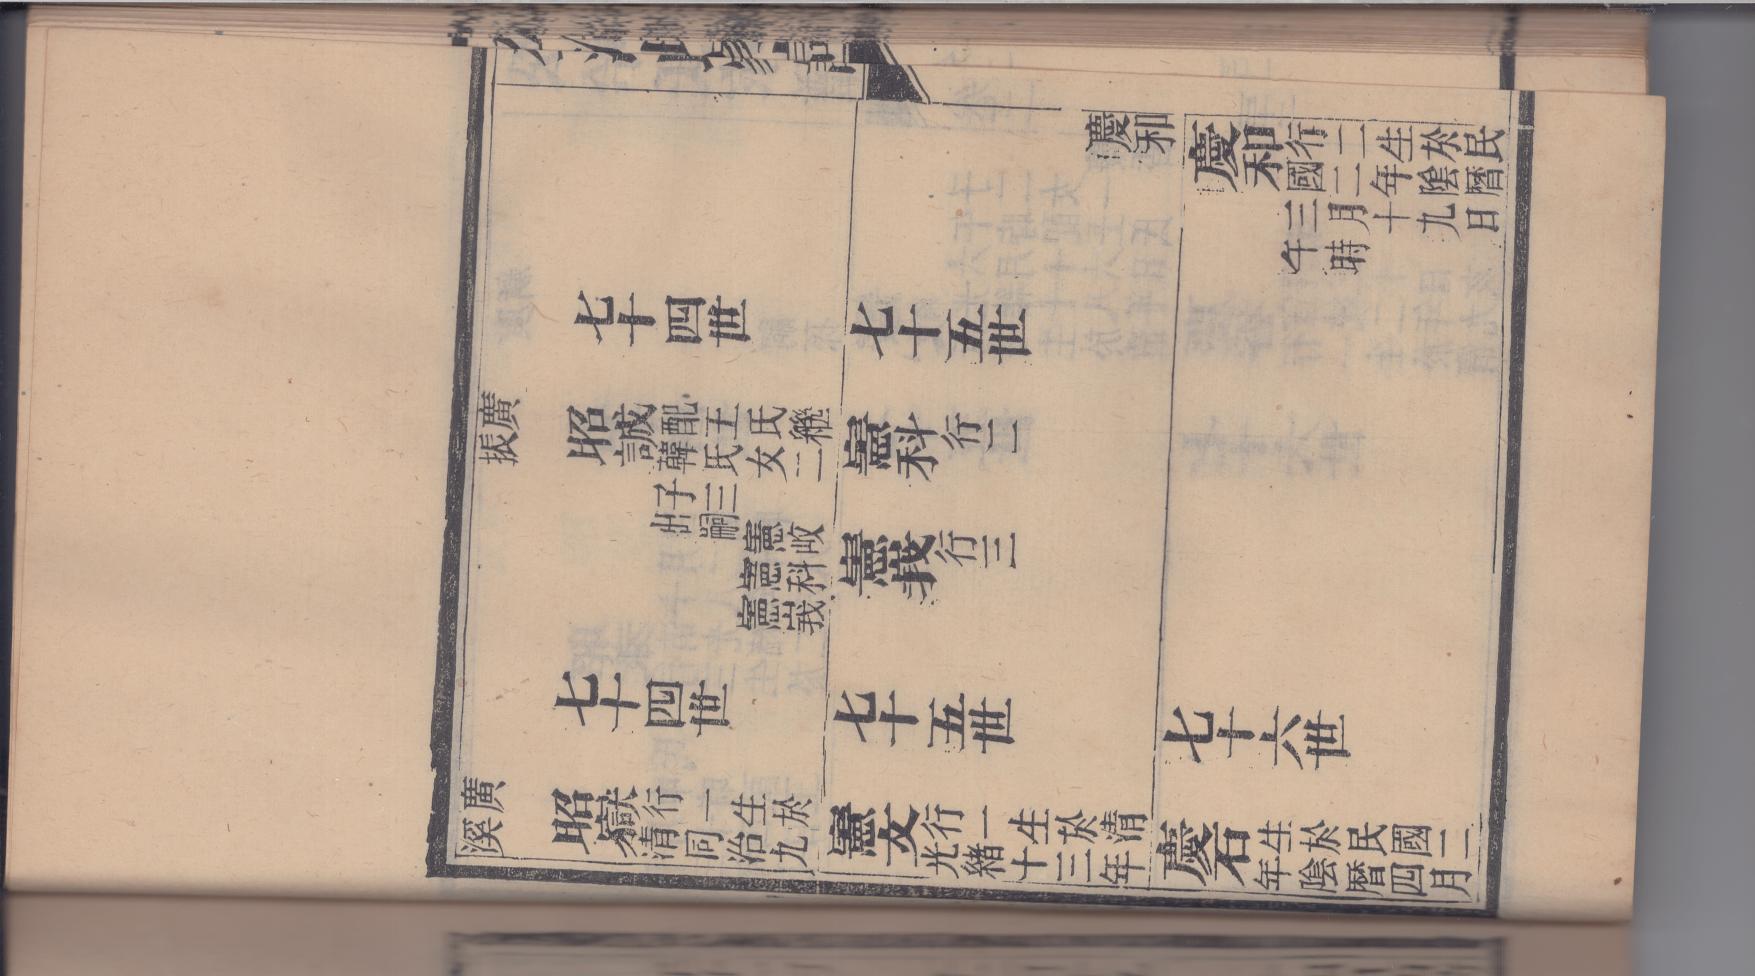 慶和
慶和 行二生於民
國二年陰曆
三月十九日
午時
七十四世
七十五世
廣振
昭誠 配王氏繼
韓氏女二
子三
出嗣
憲
憲科
憲峩
憲科 行二
憲峩 行三
七十四世
七十五世
七十六世
廣溪
昭嶽 行一生於
清同治九
憲文 行一生於清
光緒十三年
慶石 生於民國二
年陰曆四月